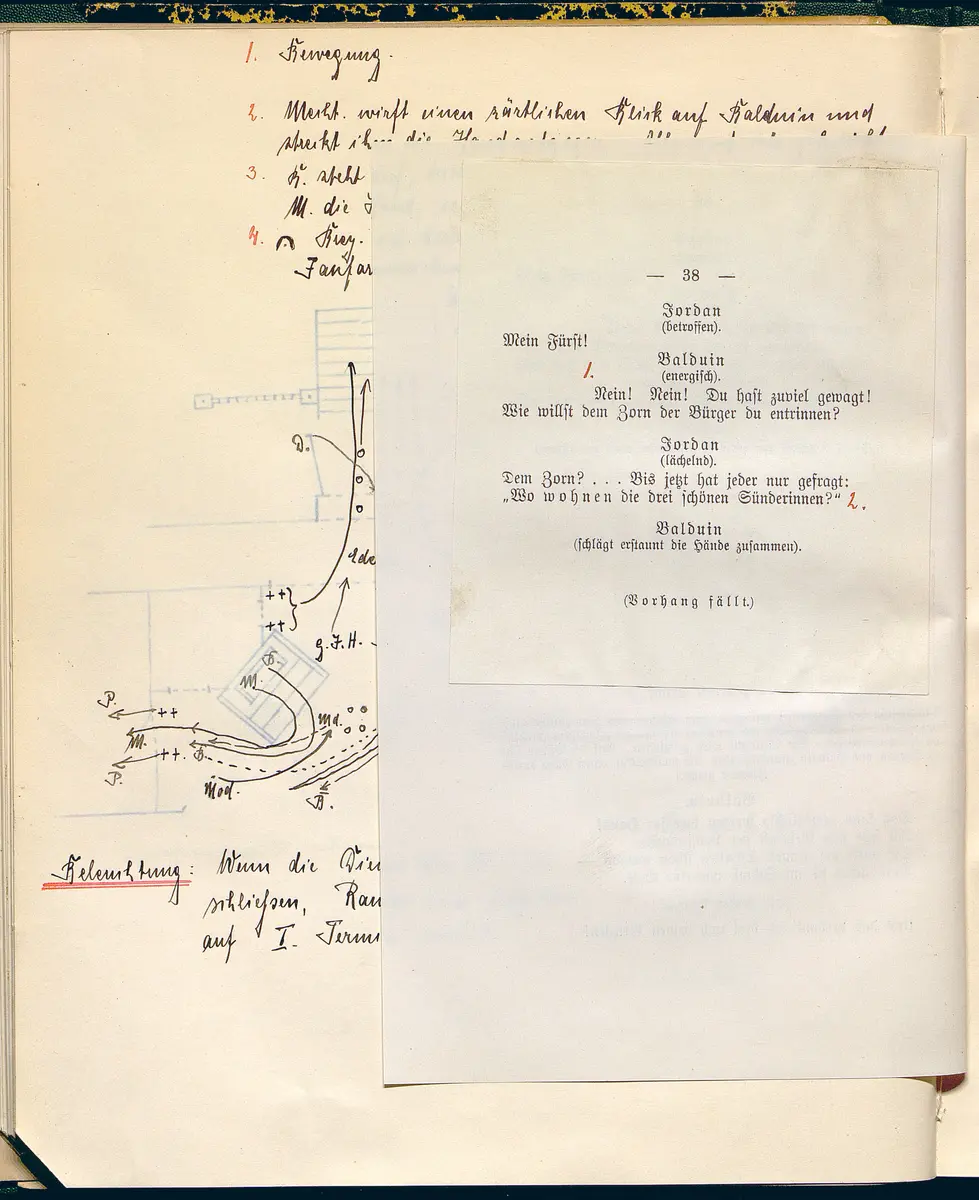 1. Bewegung.
2. Mecht. wirft einen zärtlichen Blick auf Balduin und
streckt ihm die
3. B. steht
M. die
4. Bew.
Fanfar
— 38 —
Jordan
(betroffen).
Mein Fürst!
Balduin
1.
(energisch).
Nein! Nein! Du hast zuviel gewagt!
Wie willst dem Zorn der Bürger du entrinnen?
Jordan
(lächelnd).
Dem Zorn? . . . Bis jetzt hat jeder nur gefragt:
„Wo wohnen die drei schönen Sünderinnen?“ 2.
Balduin
(schlägt erstaunt die Hände zusammen).
(Vorhang fällt.)
D.
++
++
G. F. H.
B.
M.
P.
++
Md.
M.
++
B.
P.
Mod.
B.
Beleuchtung: Wenn die Die
schließen, Ram
auf I. Term